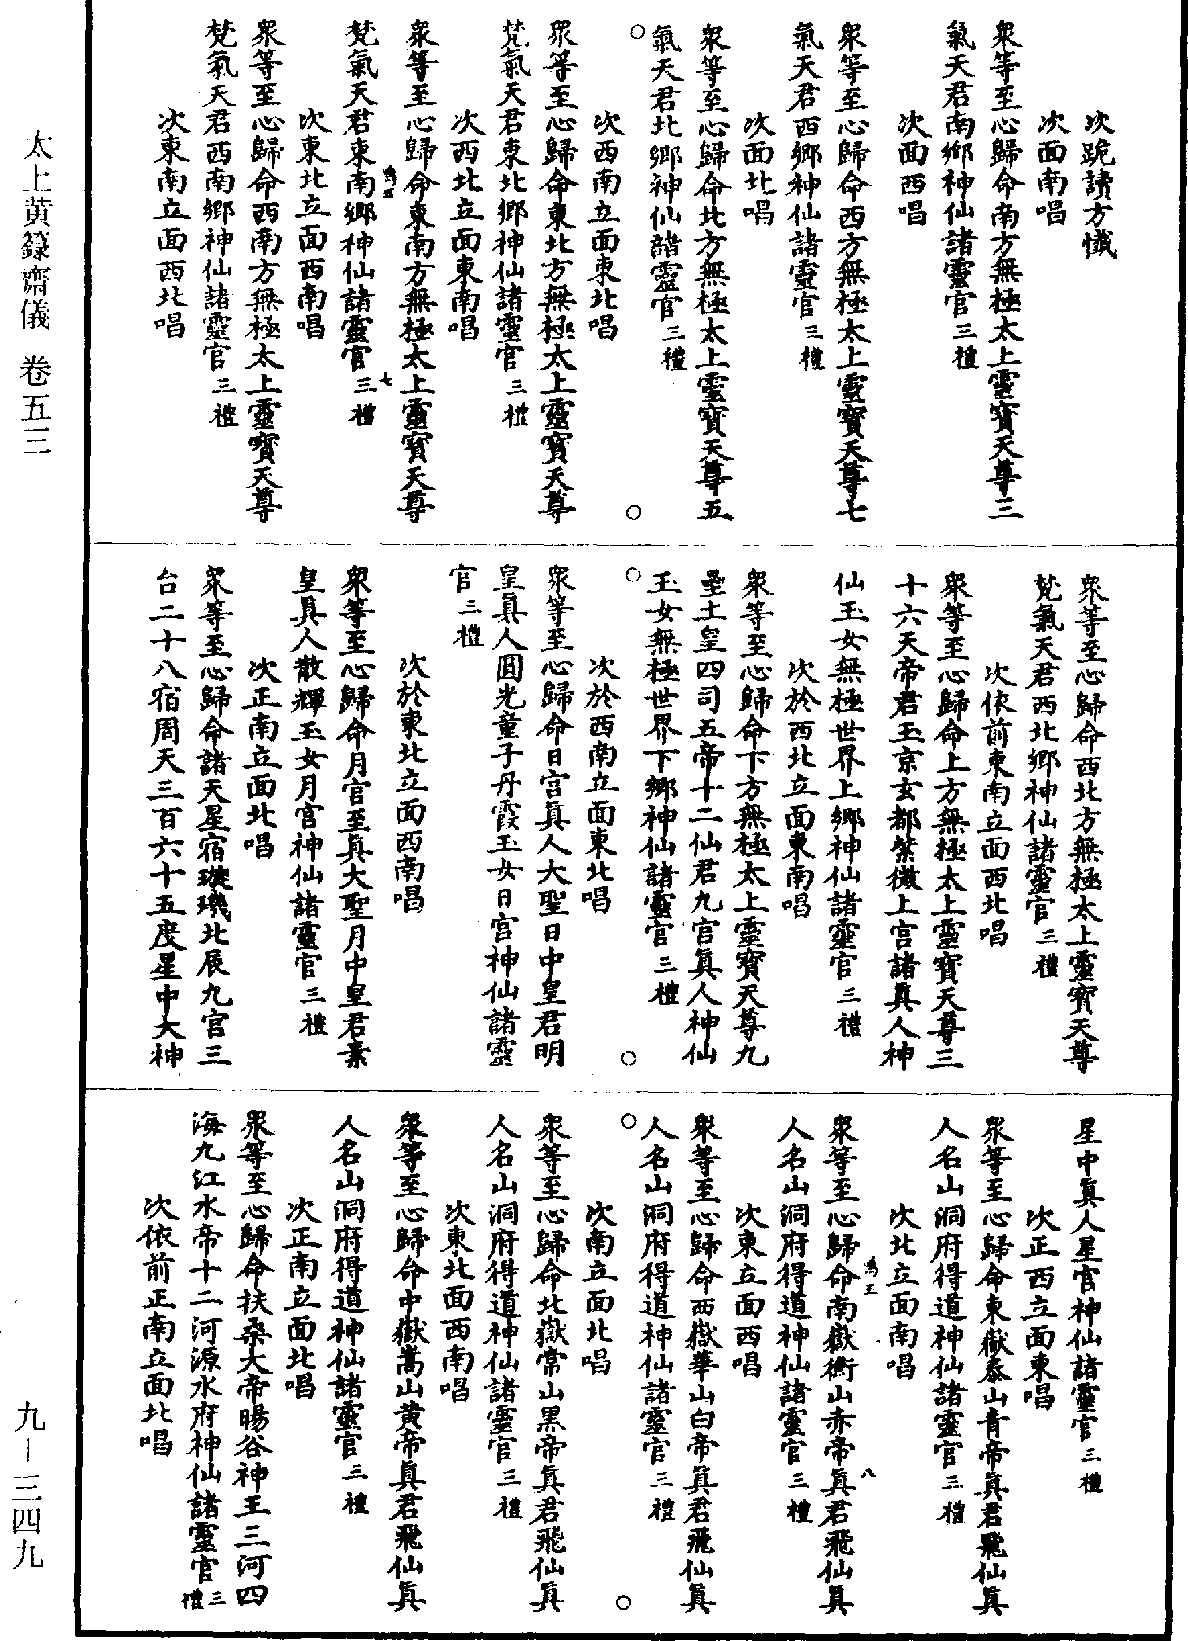 次跪讀方懺
次面南唱
衆等至心歸命南方無極太上靈寶天尊三
氣天君南鄉神仙諸靈官三禮
次面西唱
衆等至心歸命西方無極太上靈寶天尊七
氣天君西鄉神仙諸靈官三禮
次面北唱
衆等至心歸命北方無極太上靈寶天尊五
氣天君北鄉神仙諸靈官三禮
次西南立面東北唱
衆等至心歸命東北方無極太上靈寶天尊
梵氣天君東北鄉神仙諸靈官三禮
次西北立面東南唱
衆等至心歸命東南方無極太上靈寶天尊
七
梵氣天君東南鄉神仙諸靈官三禮
次東北立面西南唱
衆等至心歸命西南方無極太上靈寶天尊
梵氣天君西南鄉神仙諸靈官三禮
次東南立面西北唱
衆等至心歸命西北方無極太上靈寶天尊
梵氣天君西北鄉神仙諸靈官三禮
次依前東南立面西北唱
衆等至心歸命上方無極太上靈寶天尊三
十六天帝君玉京玄都紫微上宫諸真人神
仙玉女無極世界上鄉神仙諸靈官三禮
次於西北立面東南唱
衆等至心歸命下方無極太上靈寶天尊九
壘土皇四司五帝十二仙君九宫真人神仙
玉女無極世界下鄉神仙諸靈官三禮
次於西南立面東北唱
衆等至心歸命日宫真人大聖日中皇君明
皇真人圓光童子丹霞玉女日宫神仙諸靈
官三禮
次於東北立面西南唱
衆等至心歸命月宫至真大聖月中皇君素
皇真人散輝玉女月宫神仙諸靈官三禮
次正南立面北唱
衆等至心歸命諸天星宿璇璣北辰九宫三
台二十八宿周天三百六十五度星中大神
星中真人星官神仙諸靈官三禮
次正西立面東唱
衆等至心歸命東嶽泰山青帝真君飛仙真
人名山洞府得道神仙諸靈官三禮
次北立面南唱
衆等至心歸命南嶽衡山赤帝真君飛仙真
八
人名山洞府得道神仙諸靈官三禮
次東立面西唱
衆等至心歸命西嶽華山白帝真君飛仙真
人名山洞府得道神仙諸靈官三禮
次南立面北唱
衆等至心歸命北嶽常山黑帝真君飛仙真
人名山洞府得道神仙諸靈官三禮
次東北面西南唱
衆等至心歸命中嶽嵩山黄帝真君飛仙真
人名山洞府得道神仙諸靈官三禮
次正南立面北唱
衆等至心歸命扶桑大帝暘谷神王三河四
海九江水帝十二河源水府神仙諸靈官三禮
次依前正南立面北唱
太上黄籙齋儀 卷五三
九—三四九